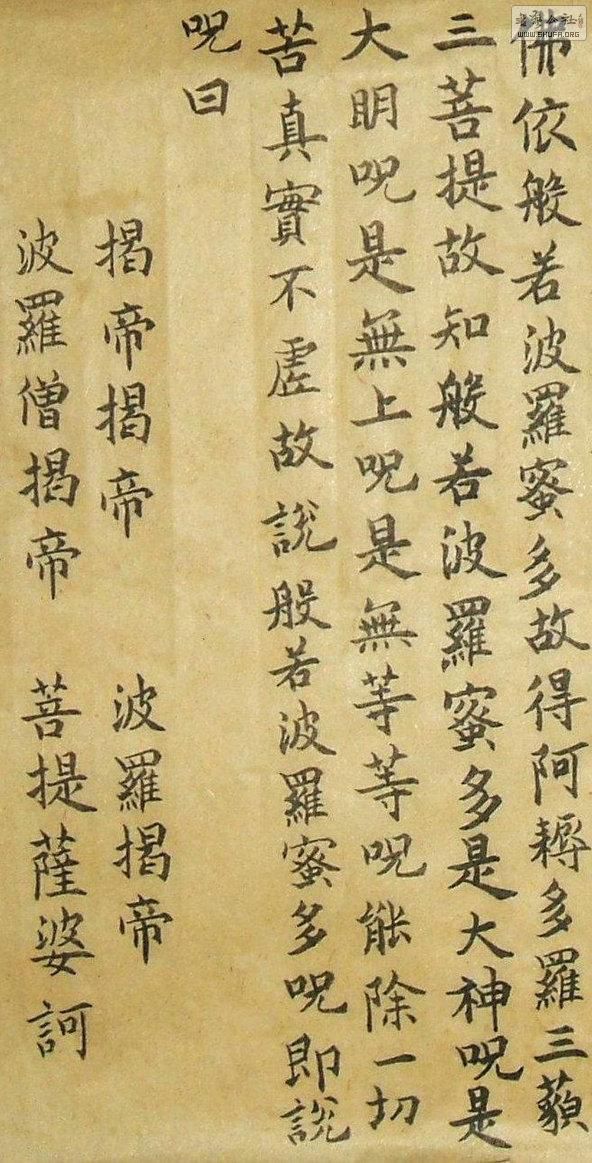 佛依般若波羅蜜多故得阿耨多羅三藐
三菩提故知般若波羅蜜多是大神呪是
大明呪是無上呪是無等等呪能除一切
苦真實不虛故說般若波羅蜜多呪即說
呪曰
揭帝揭帝 波羅揭帝
波羅僧揭帝 菩提薩婆訶
书法公社
WWW.SHUFA.ORG